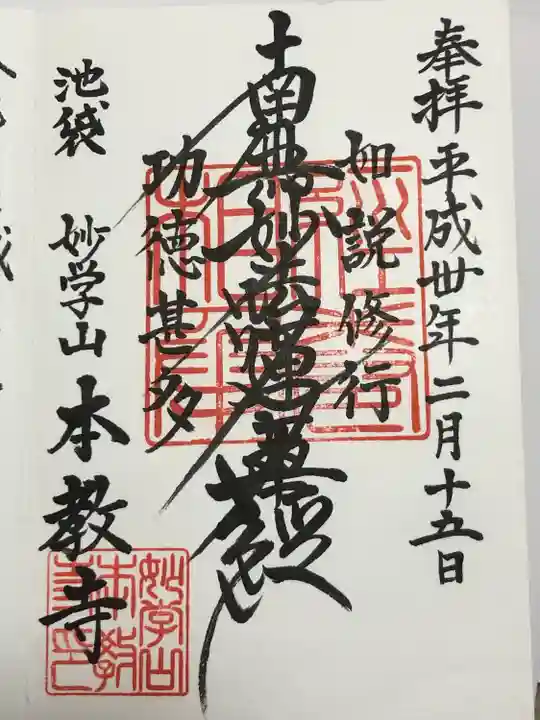 奉拝 平成丗年二月十五日
如説修行
南無妙法蓮華経
功徳甚多
池袋 妙学山 本教寺
妙学山
本教
寺印